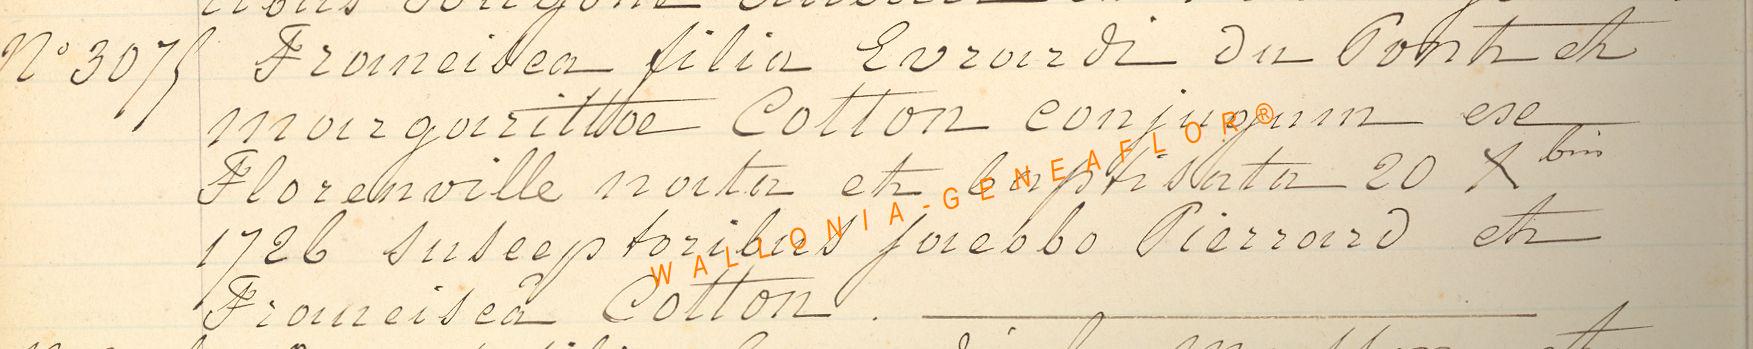 N° 307 Francisca filia Evrardi du Pont et
margarittae Cotton conjugum ex
Florenville nata et baptisata 20 X bris
1726 susceptoribus jacobo Pierrard et
Francisca Cotton.
WALLONIA-GENEAFLOR®